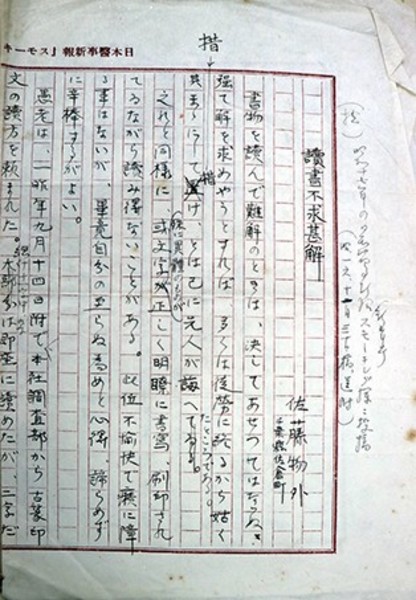 日本醫事新報「スモーキ
措
讀書不求甚解
佐藤物外
千葉縣佐倉町
書物を読んで難解のときは、決してあせつてはならぬ。
強て解を求めやうとすれば、多くは徒勞に終るから姑く
其まゝにして置け、とは已に先人が誨へて
措
たところである。
之れと同様に、或文字が正しく明瞭に書寫、刷印され
てゐながら読み得ないことがある。此位不愉快で癪に障
る事はないが、畢竟自分の至らぬ為めと心得、諦らめず
に辛棒するがよい。
愚老は、一昨年九月十四日附で本社調査部から古篆印
文の讀方を頼まれた。大部分は即座に讀めたが、二字だ